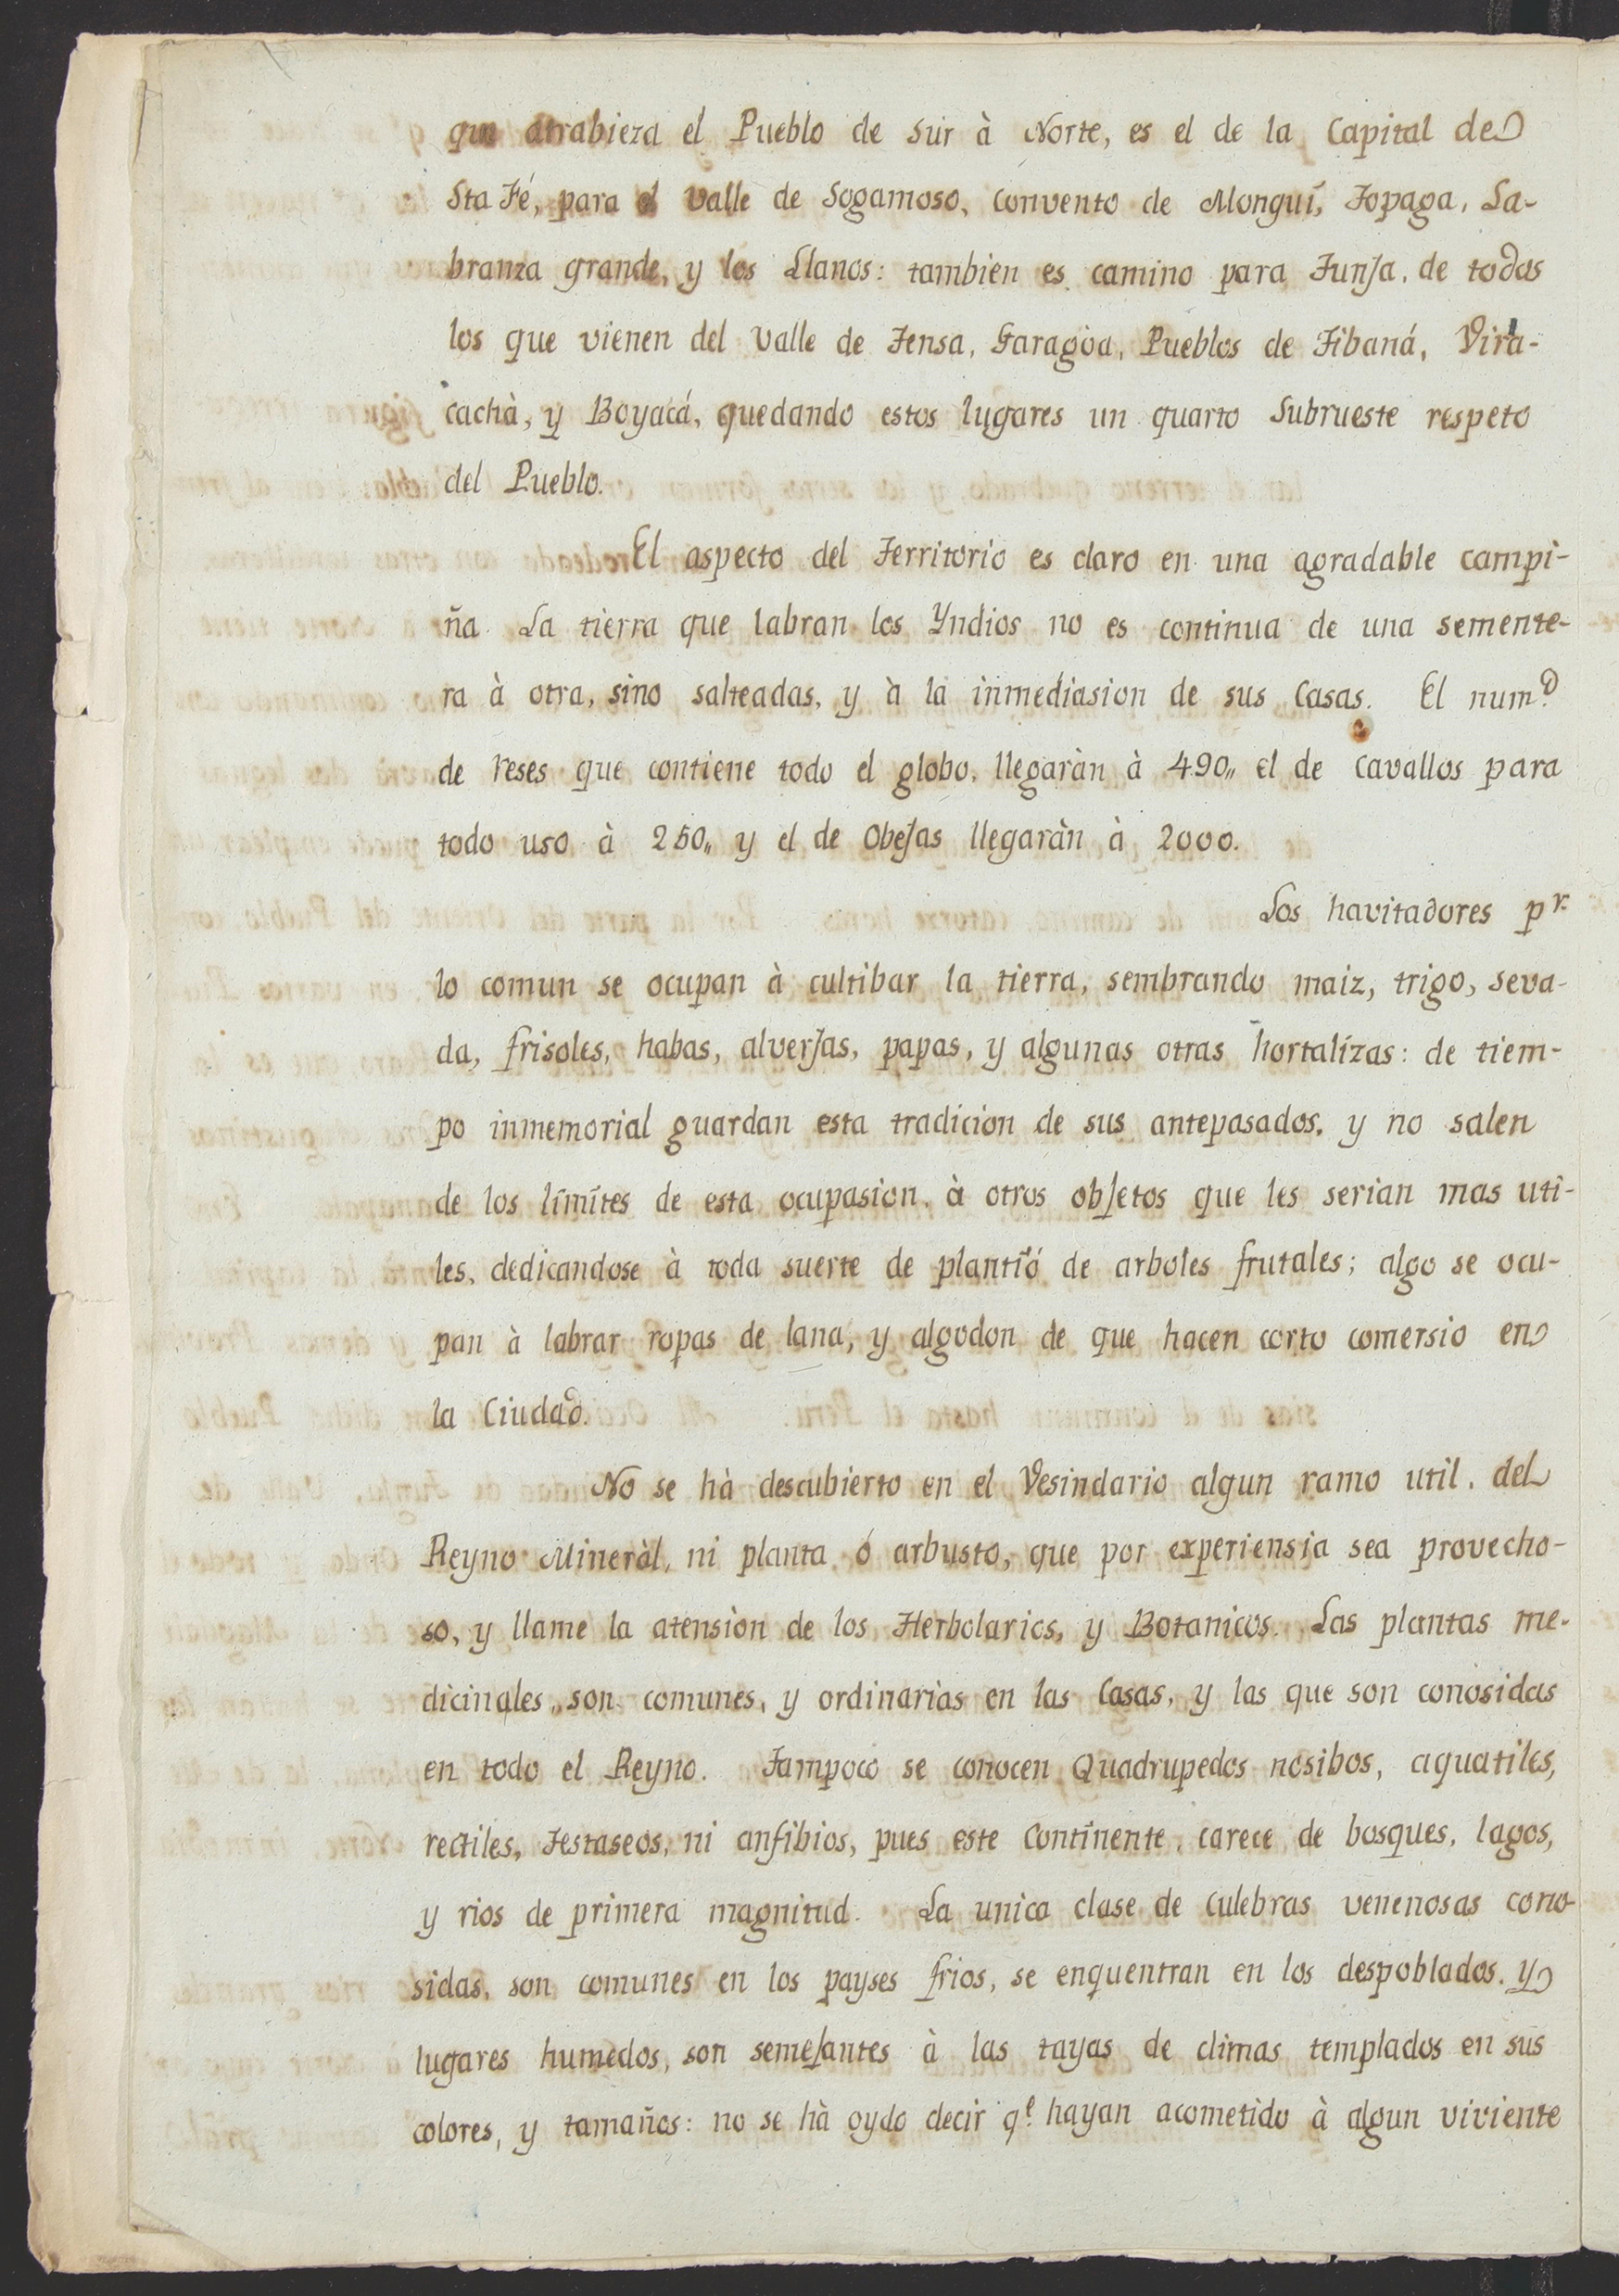 que atrabieza el Pueblo de Sur à Norte, es el de la Capital de
Sta Fé, para el Valle de Sogamoso, Convento de Monguí, Topaga, La-
branza grande, y los Llanos: tambien es camino para Tunja, de todos
los que vienen del Valle de Tensa, Garagoa, Pueblos de Tibaná, Vira-
cachà, y Boyacá, quedando estos lugares un quarto Subrueste respeto
del Pueblo.
El aspecto del Territorio es claro en una agradable campi-
ña. La tierra que labran los Yndios no es continua de una semente-
ra à otra, sino salteadas, y à la inmediasion de sus Casas. El num.o
de reses que contiene todo el globo, llegaràn à 490,, el de Cavallos para
todo uso à 250,, y el de Obejas llegaràn à 2000.
Los havitadores pr.
lo comun se ocupan à cultibar la tierra, sembrando maiz, trigo, seva-
da, frisoles, habas, alverjas, papas, y algunas otras hortalizas: de tiem-
po inmemorial guardan esta tradicion de sus antepasados, y no salen
de los límites de esta ocupasion, à otros objetos que les serian mas uti-
les, dedicandose à toda suerte de plantío de arboles frutales; algo se ocu-
pan à labrar ropas de lana, y algodon de que hacen corto comersio en
la Ciudad.
No se hà descubierto en el Vesindario algun ramo util, del
Reyno Mineràl, ni planta, ó arbusto, que por experiensia sea provecho-
so, y llame la atension de los Herbolarios, y Botanicos. Las plantas me-
dicinales,, son comunes, y ordinarias en las Casas, y las que son conosidas
en todo el Reyno. Tampoco se conocen Quadrupedos nosibos, aquatiles,
rectiles, Testaseos, ni anfibios, pues este Continente, carece de bosques, lagos,
y rios de primera magnitud. La unica clase de Culebras venenosas cono-
sidas, son comunes en los payses frios, se enquentran en los despoblados, y
lugares humedos, son semejantes à las tayas de climas templados en sus
colores, y tamaños: no se hà oydo decir q.e hayan acometido à algun viviente